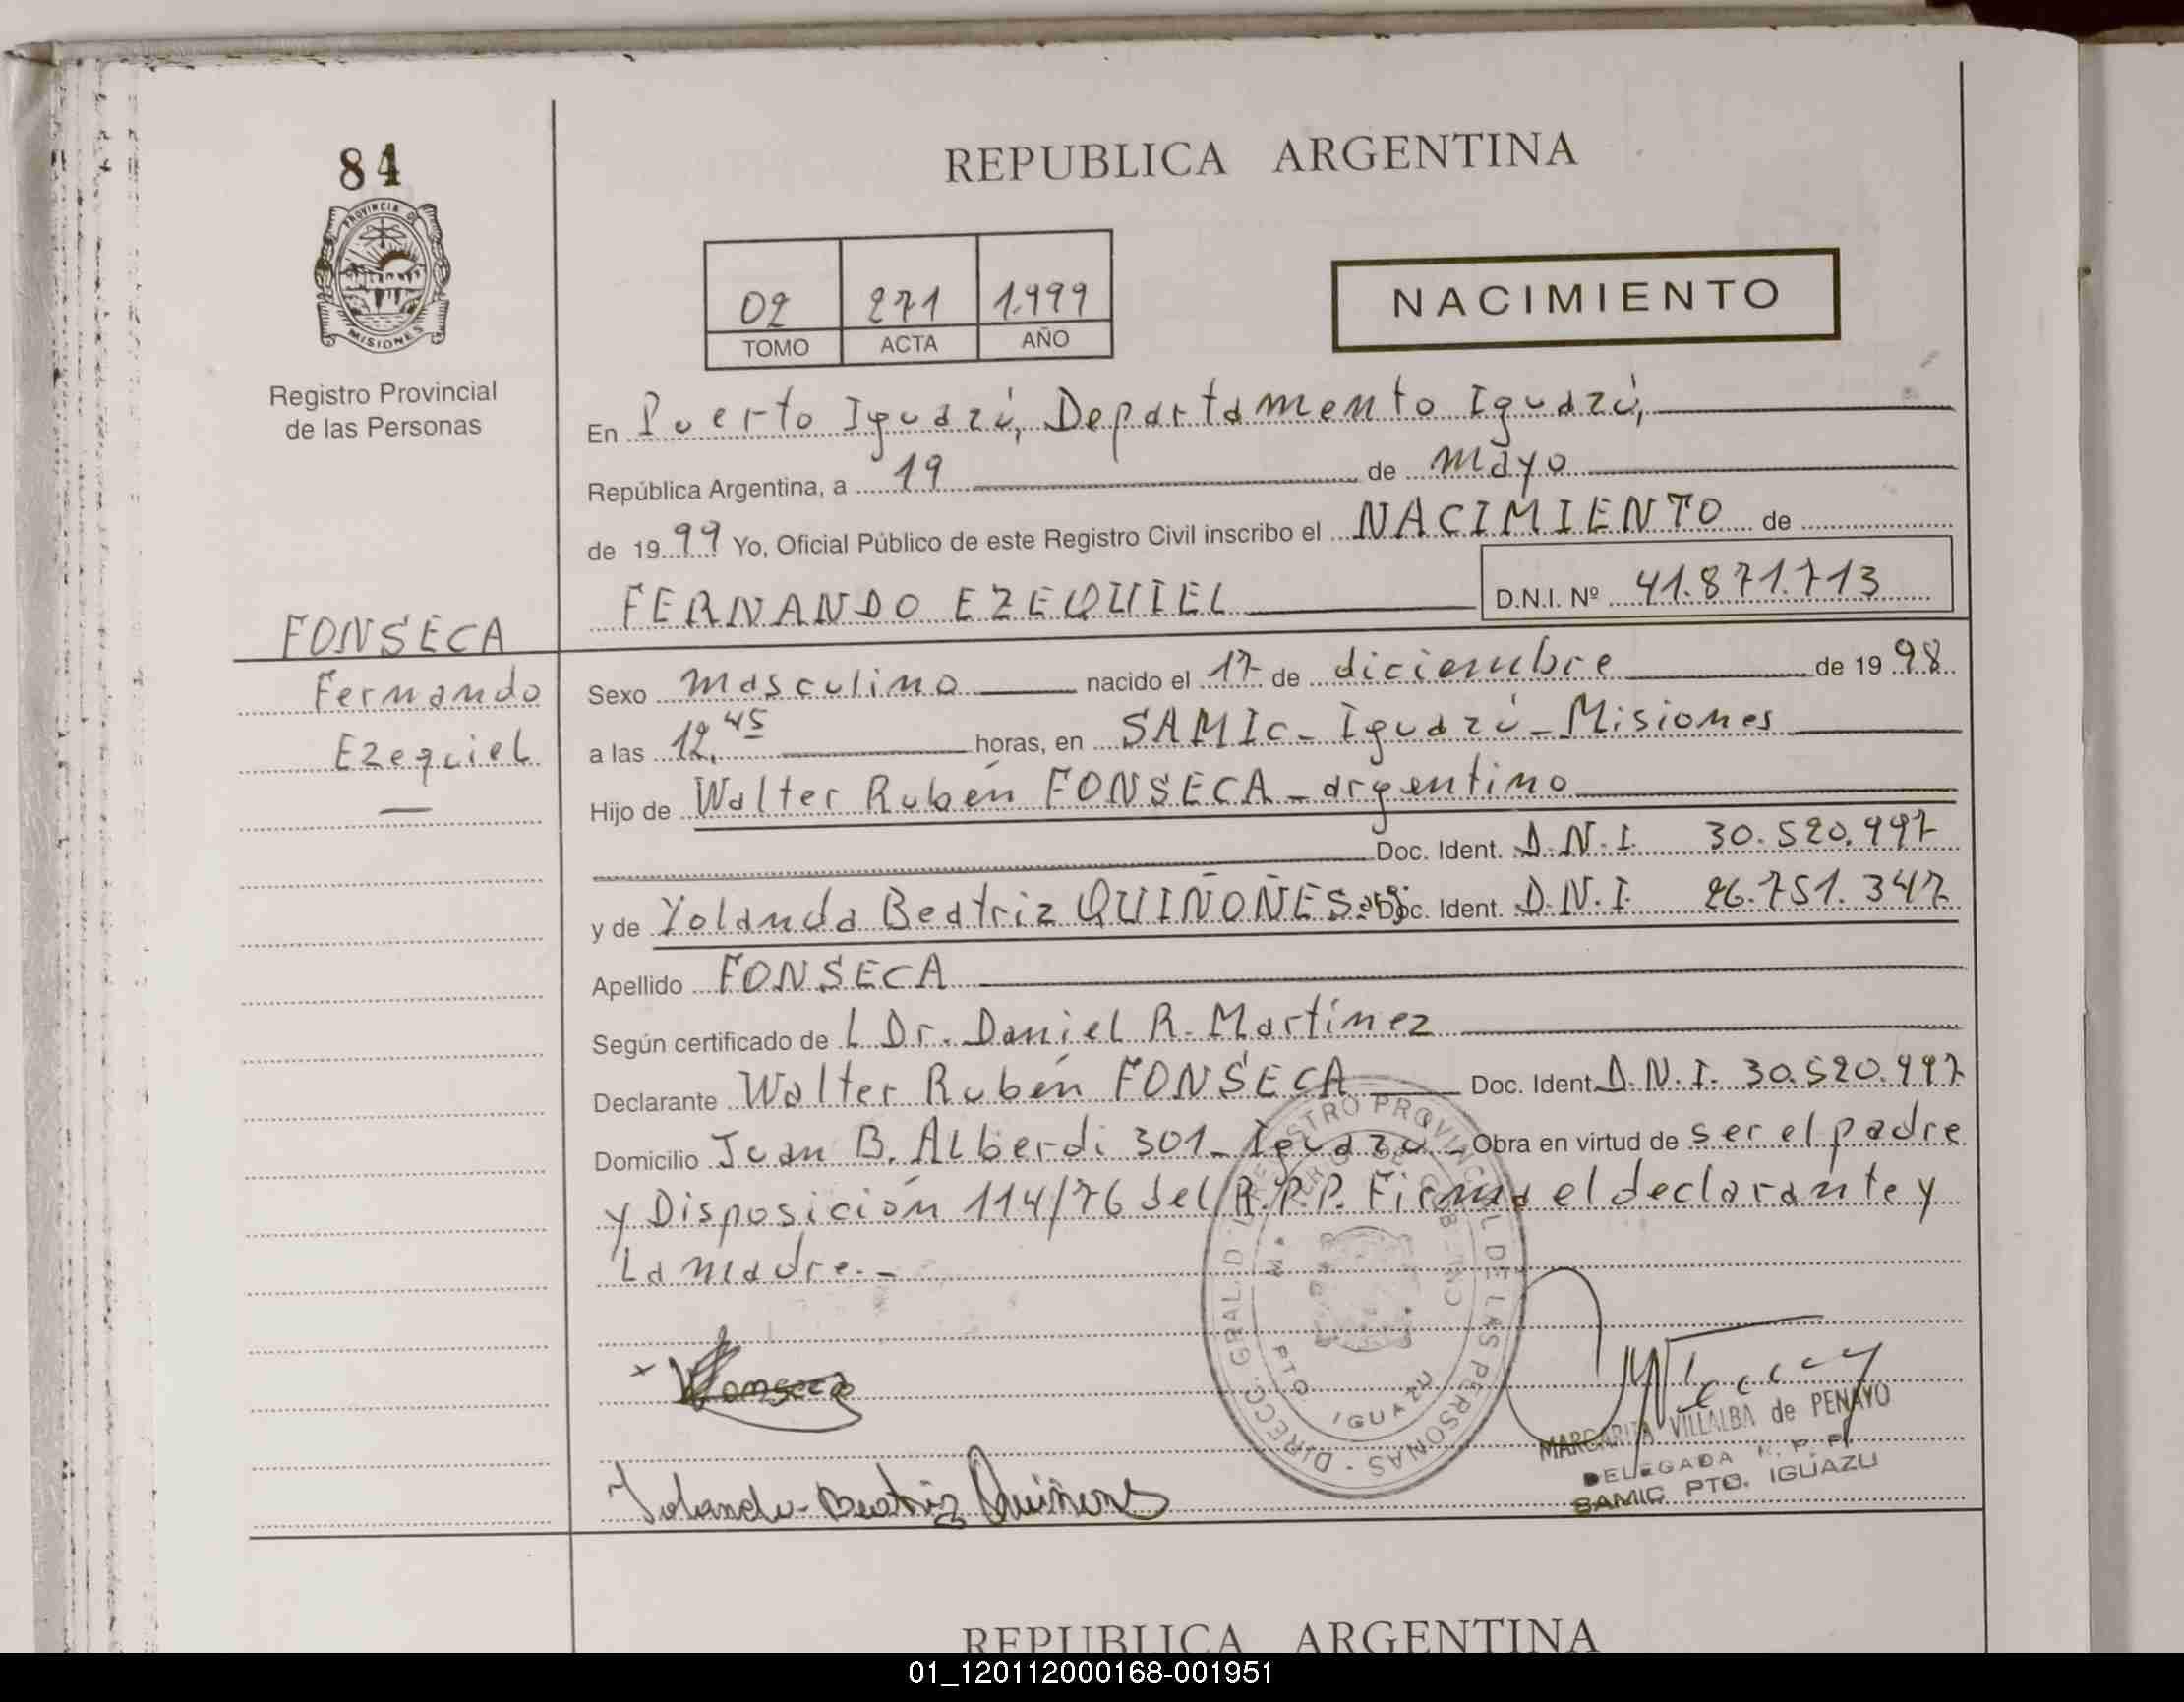 84
PROVINCIA D
MISIONES
Registro Provincial
de las Personas
REPUBLICA ARGENTINA
02 271 1.999
TOMO ACTA AÑO
NACIMIENTO
En Puerto Iguazú, Departamento Iguazú,
República Argentina, a 19 de mayo
de 1999 Yo, Oficial Público de este Registro Civil inscribo el NACIMIENTO de
FERNANDO EZEQUIEL D.N.I. Nº 41.871.713
FONSECA
Fernando
Ezequiel
Sexo masculino nacido el 17 de diciembre de 1998
a las 12.45 horas, en SAMIC - Iguazú - Misiones
Hijo de Walter Rubén FONSECA - argentino
Doc. Ident. D.N.I. 30.520.997
y de Yolanda Beatriz QUIÑOÑES - arg. Doc. Ident. D.N.I. 26.751.347
Apellido FONSECA
Según certificado de L Dr. Daniel R. Martínez
Declarante Walter Rubén FONSECA Doc. Ident. D.N.I. 30.520.997
Domicilio Juan B. Alberdi 301 - Iguazú - Obra en virtud de ser el padre
y Disposición 114/76 del R.P.P. Firma el declarante y
La madre.-
DIRECC. GRAL. D REGISTRO PROVINCIAL DE LAS PERSONAS
PTO. IGUAZU
x Fonseca
Yolanda Beatriz Quiñones
MARGARITA VILLALBA de PENAYO
DELEGADA R. P. P.
SAMIC PTO. IGUAZU
REPUBLICA ARGENTINA
01_120112000168-001951